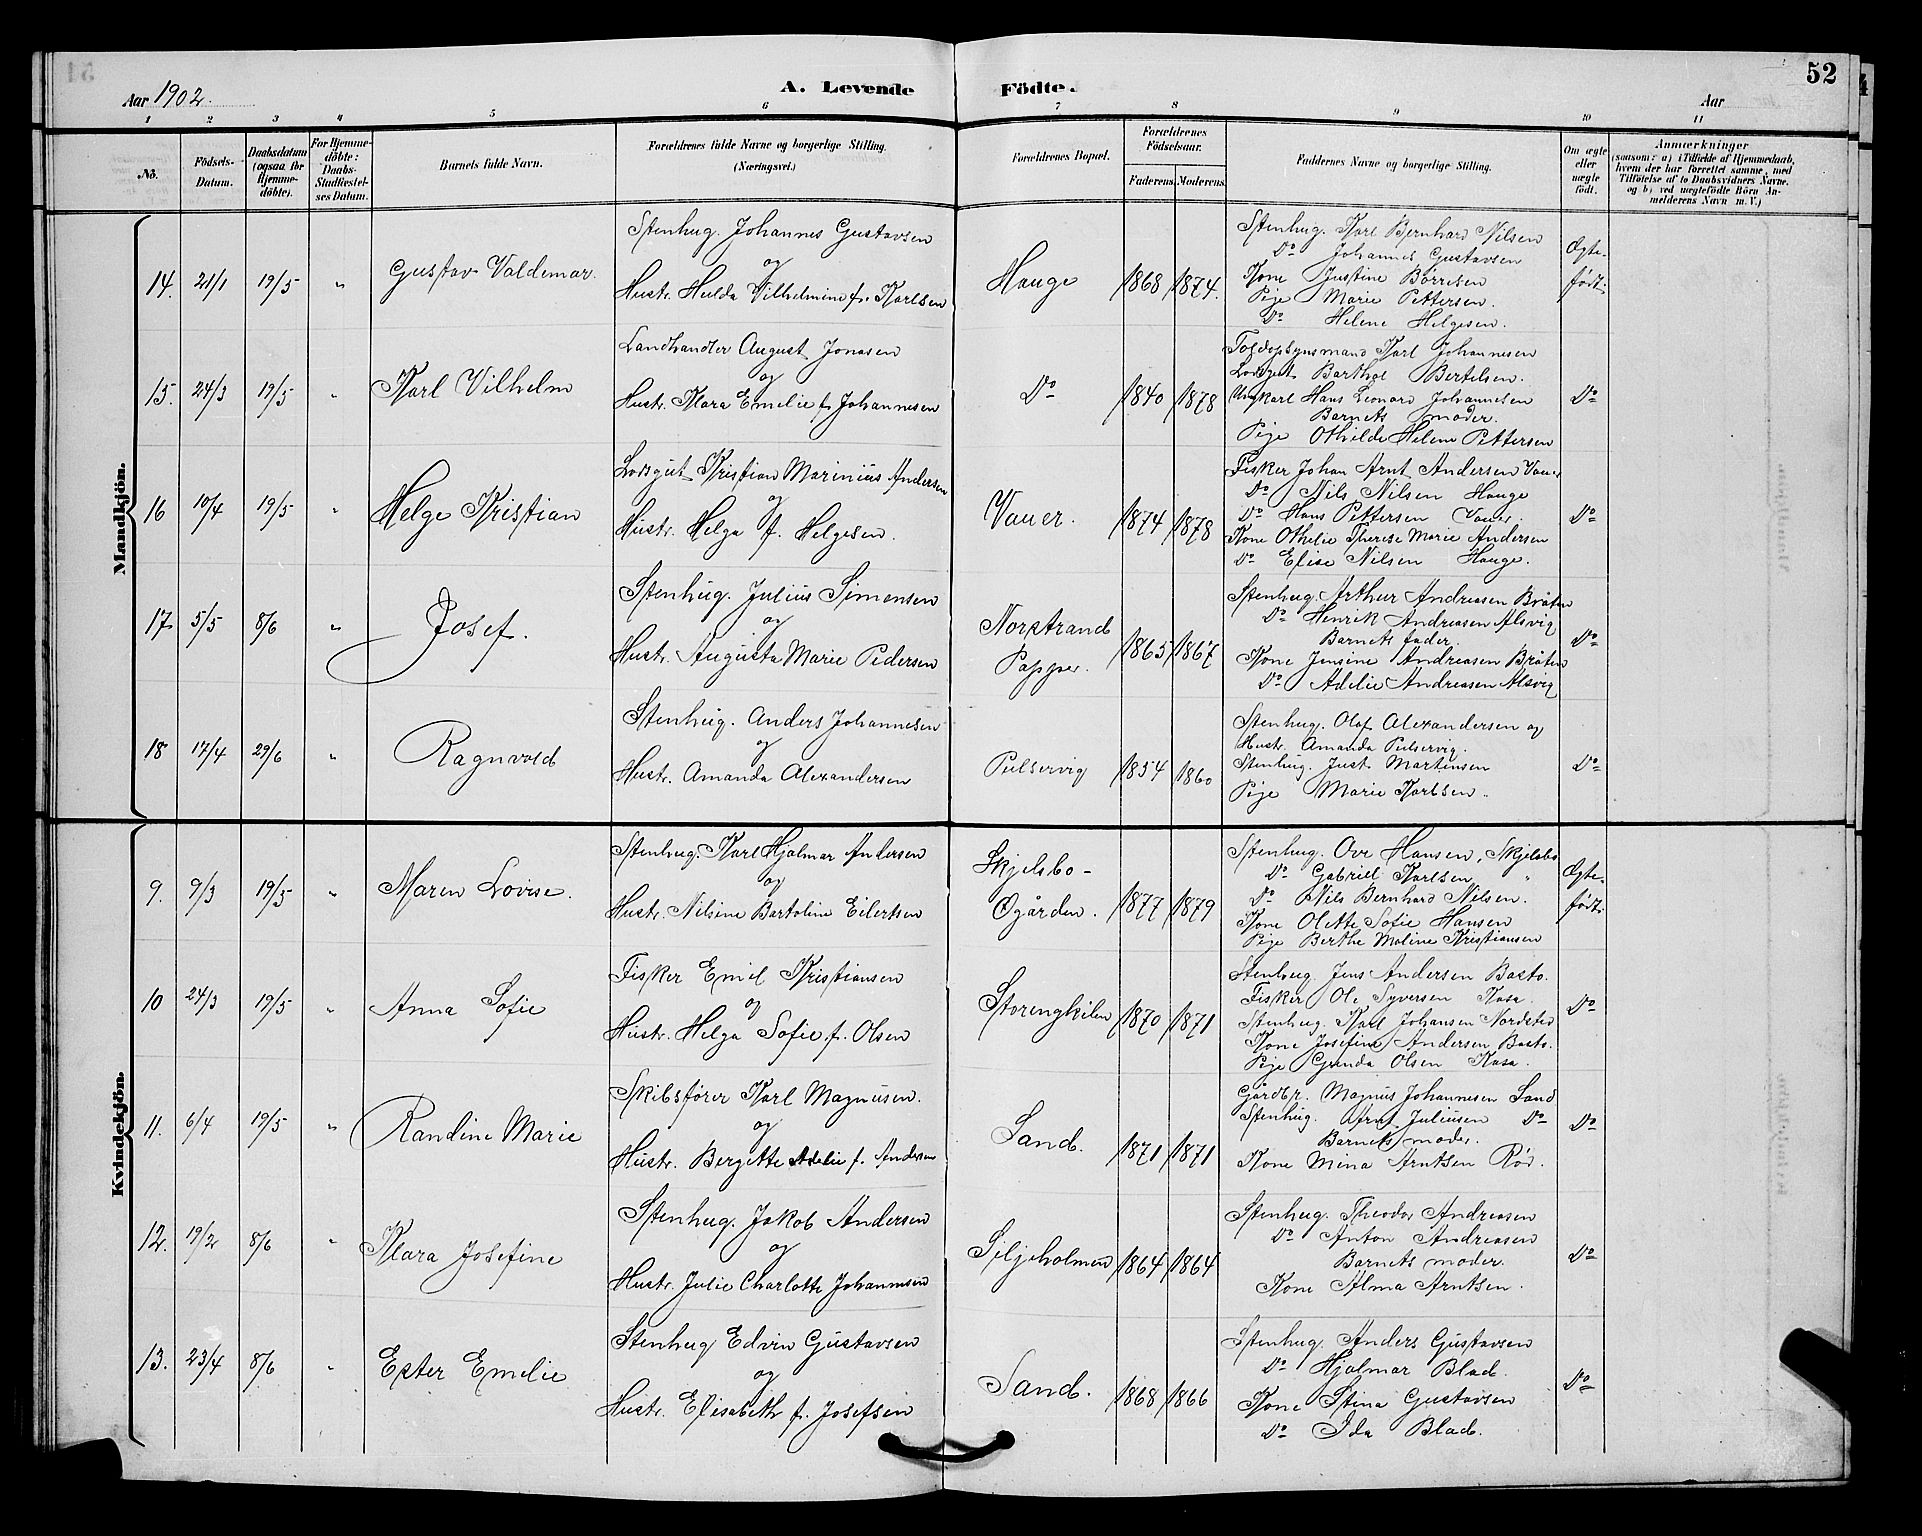 52
Aar 1902.
A. Levende Födte.
Aar
1 2 3 4 5 6 7 8 9 10 11
No.
Födsels-
Datum.
Daabsdatum
(ogsaa for
Hjemme-
döbte).
For Hjemme-
döbte:
Daabs-
Stadfæstel-
ses Datum.
Barnets fulde Navn.
Forældrenes fulde Navne og borgerlige Stilling.
(Næringsvei.)
Forældrenes Bopæl.
Forældrenes
Födselsaar.
Faderens. Moderens.
Faddernes Navne og borgerlige Stilling.
Om ægte
eller
uægte
födt.
Anmærkninger
(saasom: a) i Tilfælde af Hjemmedaab,
hvem der har forrettet samme, med
Tilföielse af to Daabsvidners Navne.
og b) ved uægtefödte Börn An-
melderens Navn m. V.)
Mandkjön.
14. 21/1 19/5 "
Gustav Valdemar.
Stenhug. Johannes Gustavsen
og
Hustr. Hulda Vilhelmine f. Karlsen
Hauge
1868 1874.
Stenhug. Karl Bernhard Nilsen
Do Johannes Gustavsen
Kone Justine Børresen
Pige Marie Pettersen.
Do Helene Helgesen.
Ægte-
født.
15. 24/3 19/5 "
Karl Vilhelm
Landhandler August Jonasen
og
Hustr. Klara Emelie f. Johannesen
Do
1840 1878
Toldopsynsmand Karl Johannesen
Lodsgut Barthol Bertelsen.
Ungkarl Hans Leonard Johannesen
Barnets moder.
Pige Othilde Helene Pettersen
Do
16 10/4 19/5 "
Helge Kristian
Lodsgut Kristian Marinius Andersen
og
Hustr. Helga f. Helgesen.
Vauer.
1874 1878
Fisker Johan Arnt Andersen Vauer
Do Nils Nilsen Hauge
Do Hans Pettersen Vauer.
Kone Othelie Therese Marie Andersen
Do Elise Nilsen Hauge.
Do
17 5/5 8/6 "
Josef.
Stenhug. Julius Simensen
og
Hustr. Augusta Marie Pedersen
Norstrand
Papper.
1865 1867
Stenhug. Arthur Andreasen Bråten
Do Henrik Andreasen Alsvig
Barnets fader.
Kone Jensine Andreasen Bråten
Do Adelie Andreasen Alsvig
Do
18 17/4 29/6 "
Ragnvald
Stenhug. Anders Johannesen
og
Hustr. Amanda Alexandersen
Pulservig
1854 1860
Stenhug. Olaf Alexandersen og
Hustr. Amanda Pulservig.
Stenhug. Just Martinsen
Pige Marie Karlsen.
Do
Kvindekjön.
9. 9/3 19/5 "
Maren Lovise.
Stenhug. Karl Hjalmar Andersen
og
Hustr. Nilsine Bartoline Eilertsen
Skjelsbo-
Øgården.
1877 1879
Stenhug. Ove Hansen, Skjelsbo
Do Gabriell Karlsen "
Do Nils Bernhard Nilsen.
Kone Olette Sofie Hansen
Pige Berthe Maline Kristiansen
Ægte-
født.
10 24/3 19/5 "
Anna Sofie
Fisker Emil Kristiansen
og
Hustr. Helga Sofie f. Olsen
Storengkilen
1870 1871
Stenhug. Jens Andersen Basto.
Fisker Ole Syversen Kasa.
Stenhug. Karl Johansen Nordsted
Kone Josefine Andersen Basto.
Pige Gunda Olsen Kasa.
Do
11. 6/4 19/5 "
Randine Marie
Skibsfører Karl Magnusen.
og
Hustr. Bergitte Adelie f. Andersen
Sand.
1871 1871
Gårdbr. Magnus Johannesen Sand
Stenhug. Arnt Juliusen Do
Barnets moder.
Kone Mina Arntsen Rød.
Do
12. 19/2 8/6 "
Klara Josefine
Stenhug. Jakob Andersen
og
Hustr. Julie Charlotte Johannesen
Siljeholmen
1864 1864
Stenhug. Theodor Andreasen
Do Anton Andreasen
Barnets moder.
Kone Alma Arntsen.
Do
13. 23/4 8/6 "
Ester Emelie
Stenhug Edvin Gustavsen
og
Hustr. Elisabeth f. Josefsen
Sand.
1868 1866
Stenhug. Anders Gustavsen
Do Hjalmar Blad.
Kone Stina Gustavsen
Do Ida Blad.
Do